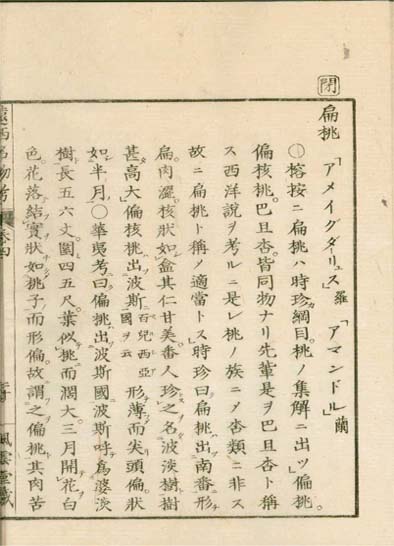 閇
扁桃「アメイグダーリュス」羅「アマンドル」蘭
○榕按ニ扁桃ハ時珍綱目。桃ノ集解ニ出ツ」偏桃。
偏核桃。巴旦杏。皆同物ナリ先輩是ヲ巴旦杏ト稱
ス西洋說ヲ考ルニ是レ桃ノ族ニ乄杏類ニ非ス
故ニ扁桃ト稱ノ適當トス」時珍曰扁桃出南番形
扁肉澀。核狀如盒其仁甘美番人珍之名波淡樹樹
甚高大」偏核桃出波斯百兒西亞國ヲ云形薄而尖頭偏狀
如半月」○華夷考曰偏桃出波斯國波斯呼為婆淡
樹長五六丈。圍四五尺。葉似桃而濶大。三月開花白
色。花落結實狀如桃子而形偏。故謂之偏桃其肉苦
遠西名物考 卷四
風雲堂藏